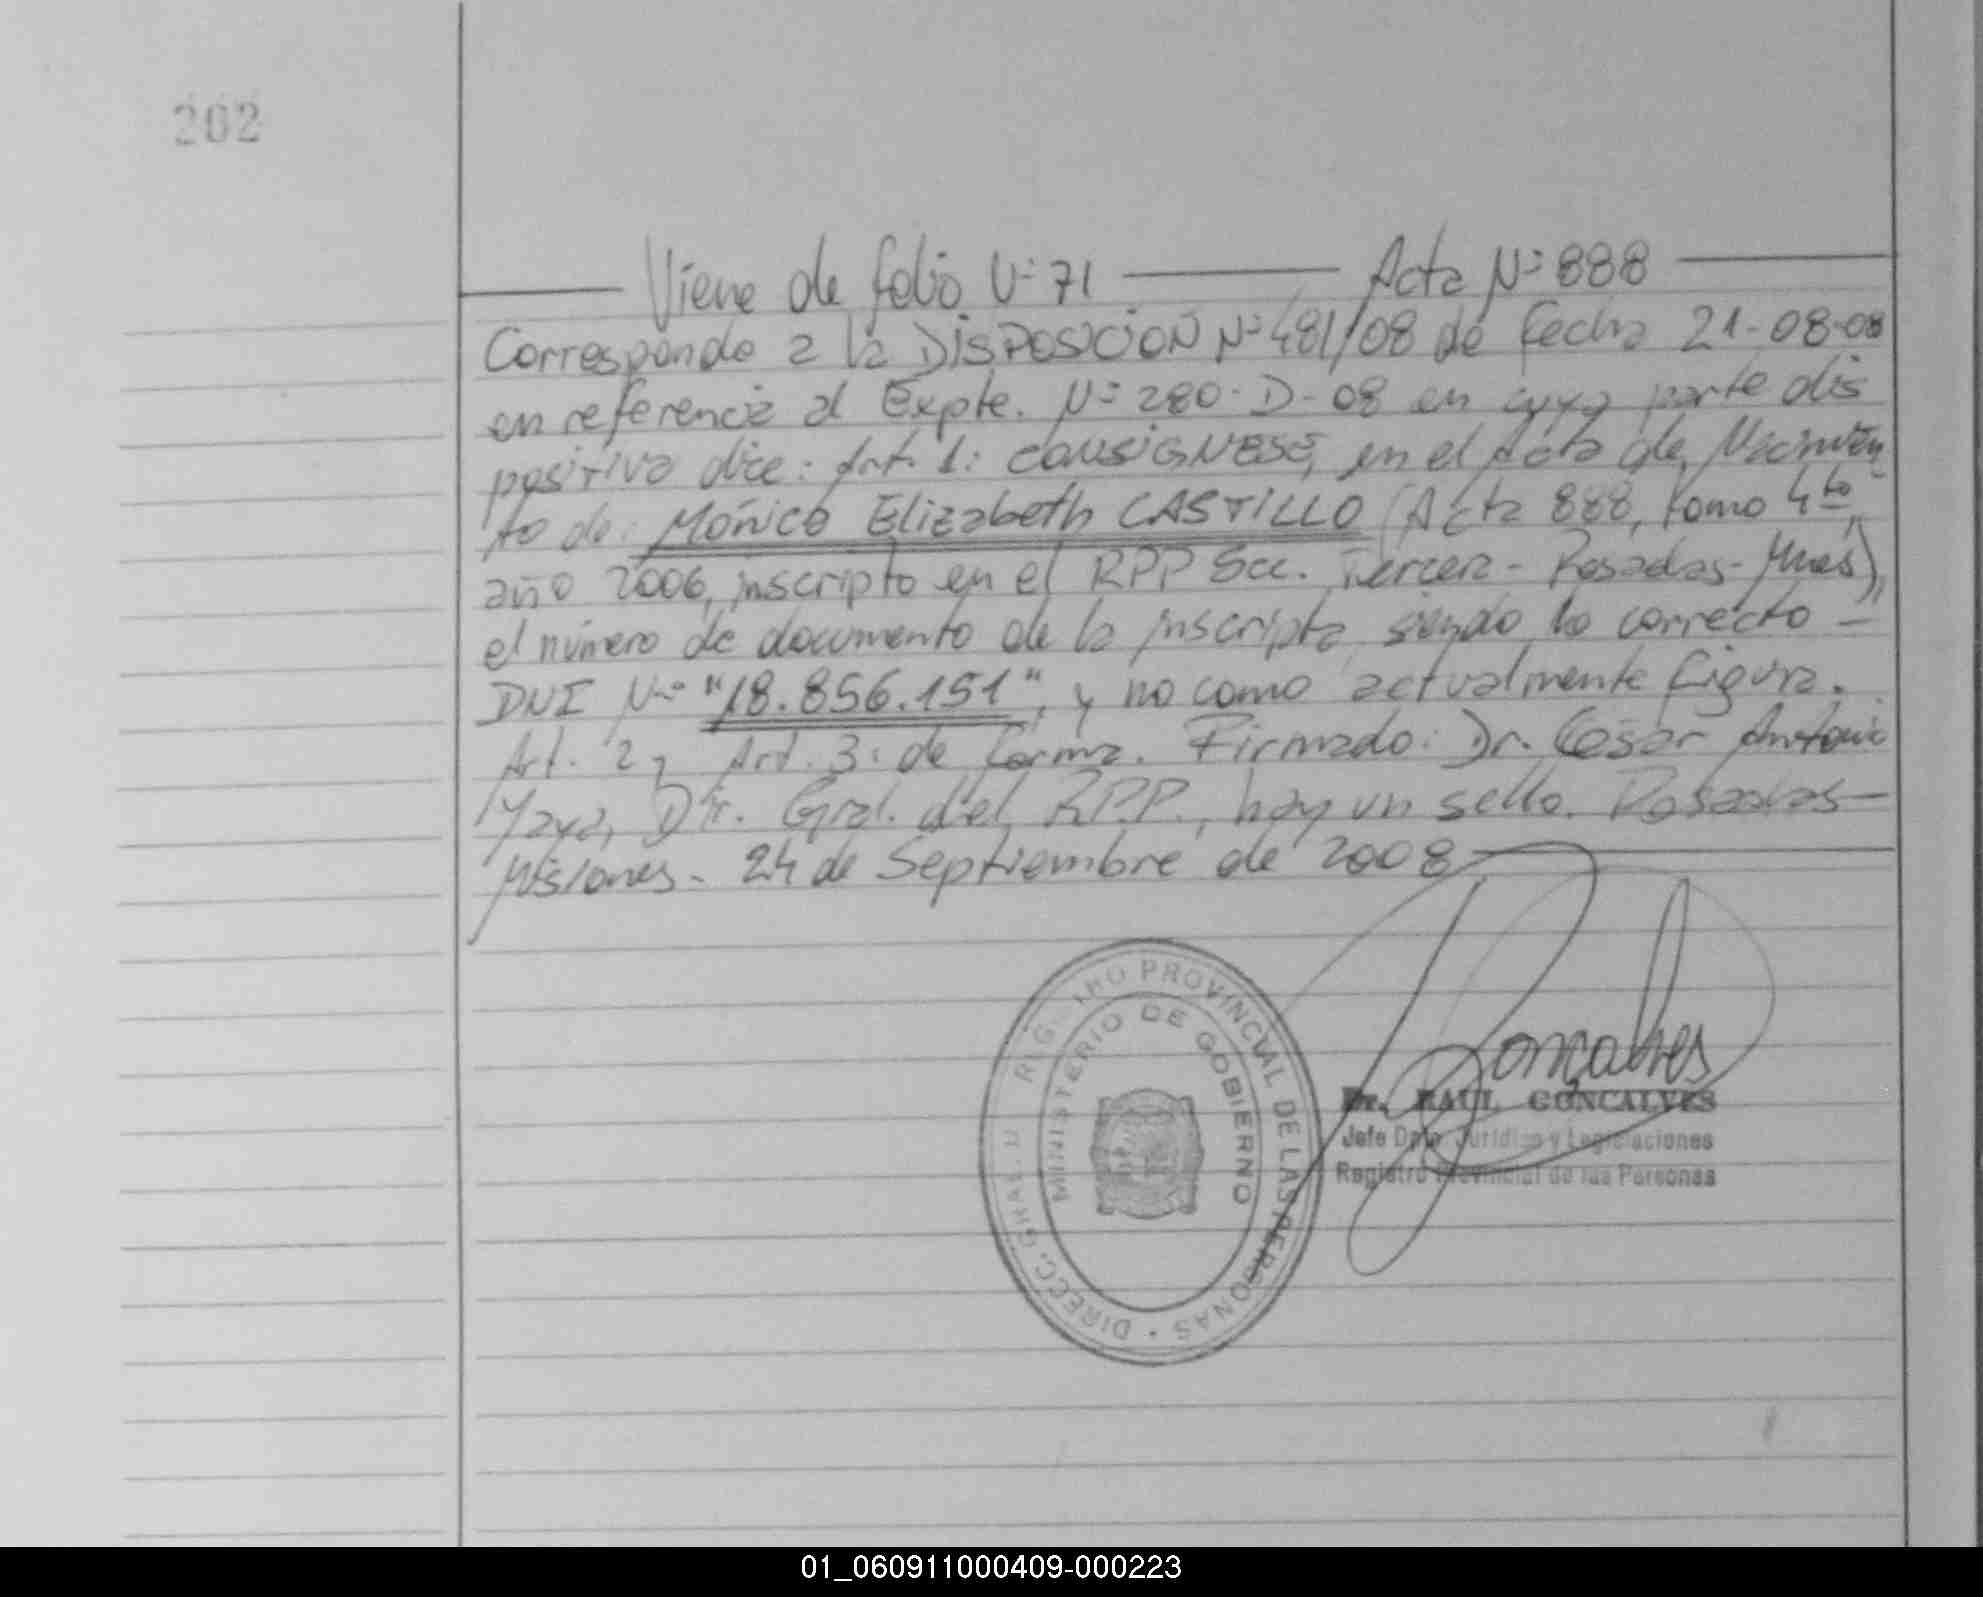 202
Viene de folio Nº 71 — Acta Nº 888
Corresponde a la DISPOSICIÓN Nº 481/08 de fecha 21-08-08
en referencia al Expte. Nº 280-D-08 en cuya parte dis
positiva dice: Art. 1: CONSIGNESE, en el Acta de Nacimien
to de: Mónica Elizabeth CASTILLO (Acta 888, tomo 4to,
año 2006, inscripto en el RPP Scc. Tercera - Posadas - Mnes),
el número de documento de la inscripta, siendo lo correcto -
DNI Nº "18.856.151", y no como actualmente figura.
Art. 2 y Art. 3: de forma. Firmado: Dr. César Antonio
Yaya, Dir. Gral. del RPP., hay un sello. Posadas -
Misiones - 24 de Septiembre de 2008
DIRECC. GRAL. D REGISTRO PROVINCIAL DE LAS PERSONAS
MINISTERIO DE GOBIERNO
Gonçalves
Dr. RAUL GONCALVES
Jefe Dpto. Jurídico y Legislaciones
Registro Provincial de las Personas
01_060911000409-000223